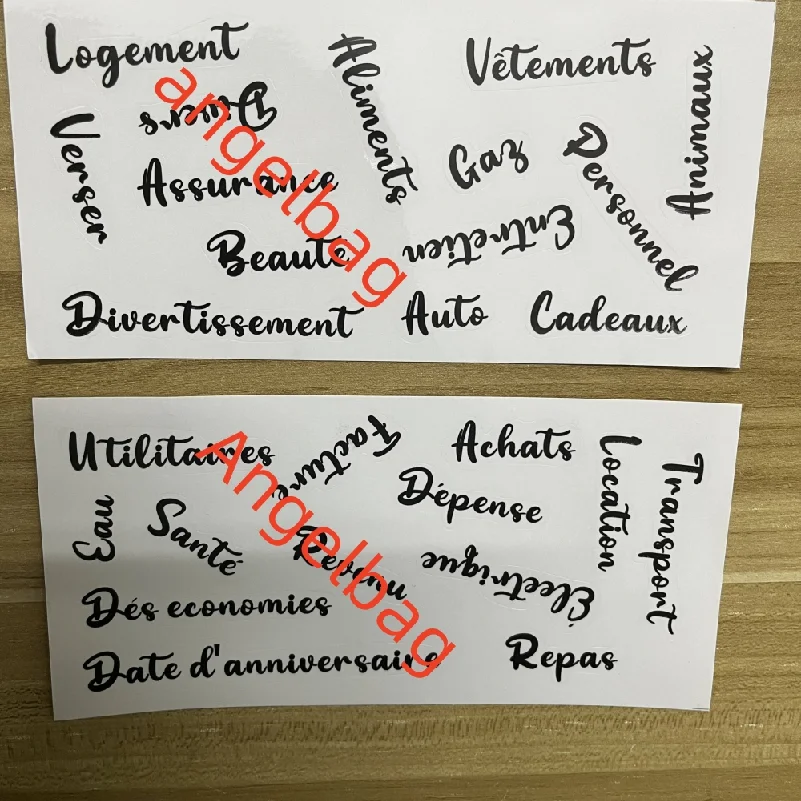 Logement
Aliments
Vêtements
Animaux
Divers
Verser
Gaz
Personnel
Assurance
Entretien
Beauté
Divertissement
Auto
Cadeaux
angelbag
Utilitaires
Facture
Achats
Location
Transport
Dépense
Eau
Santé
Revenu
Électrique
Dés economies
Date d'anniversaire
Repas
Angelbag